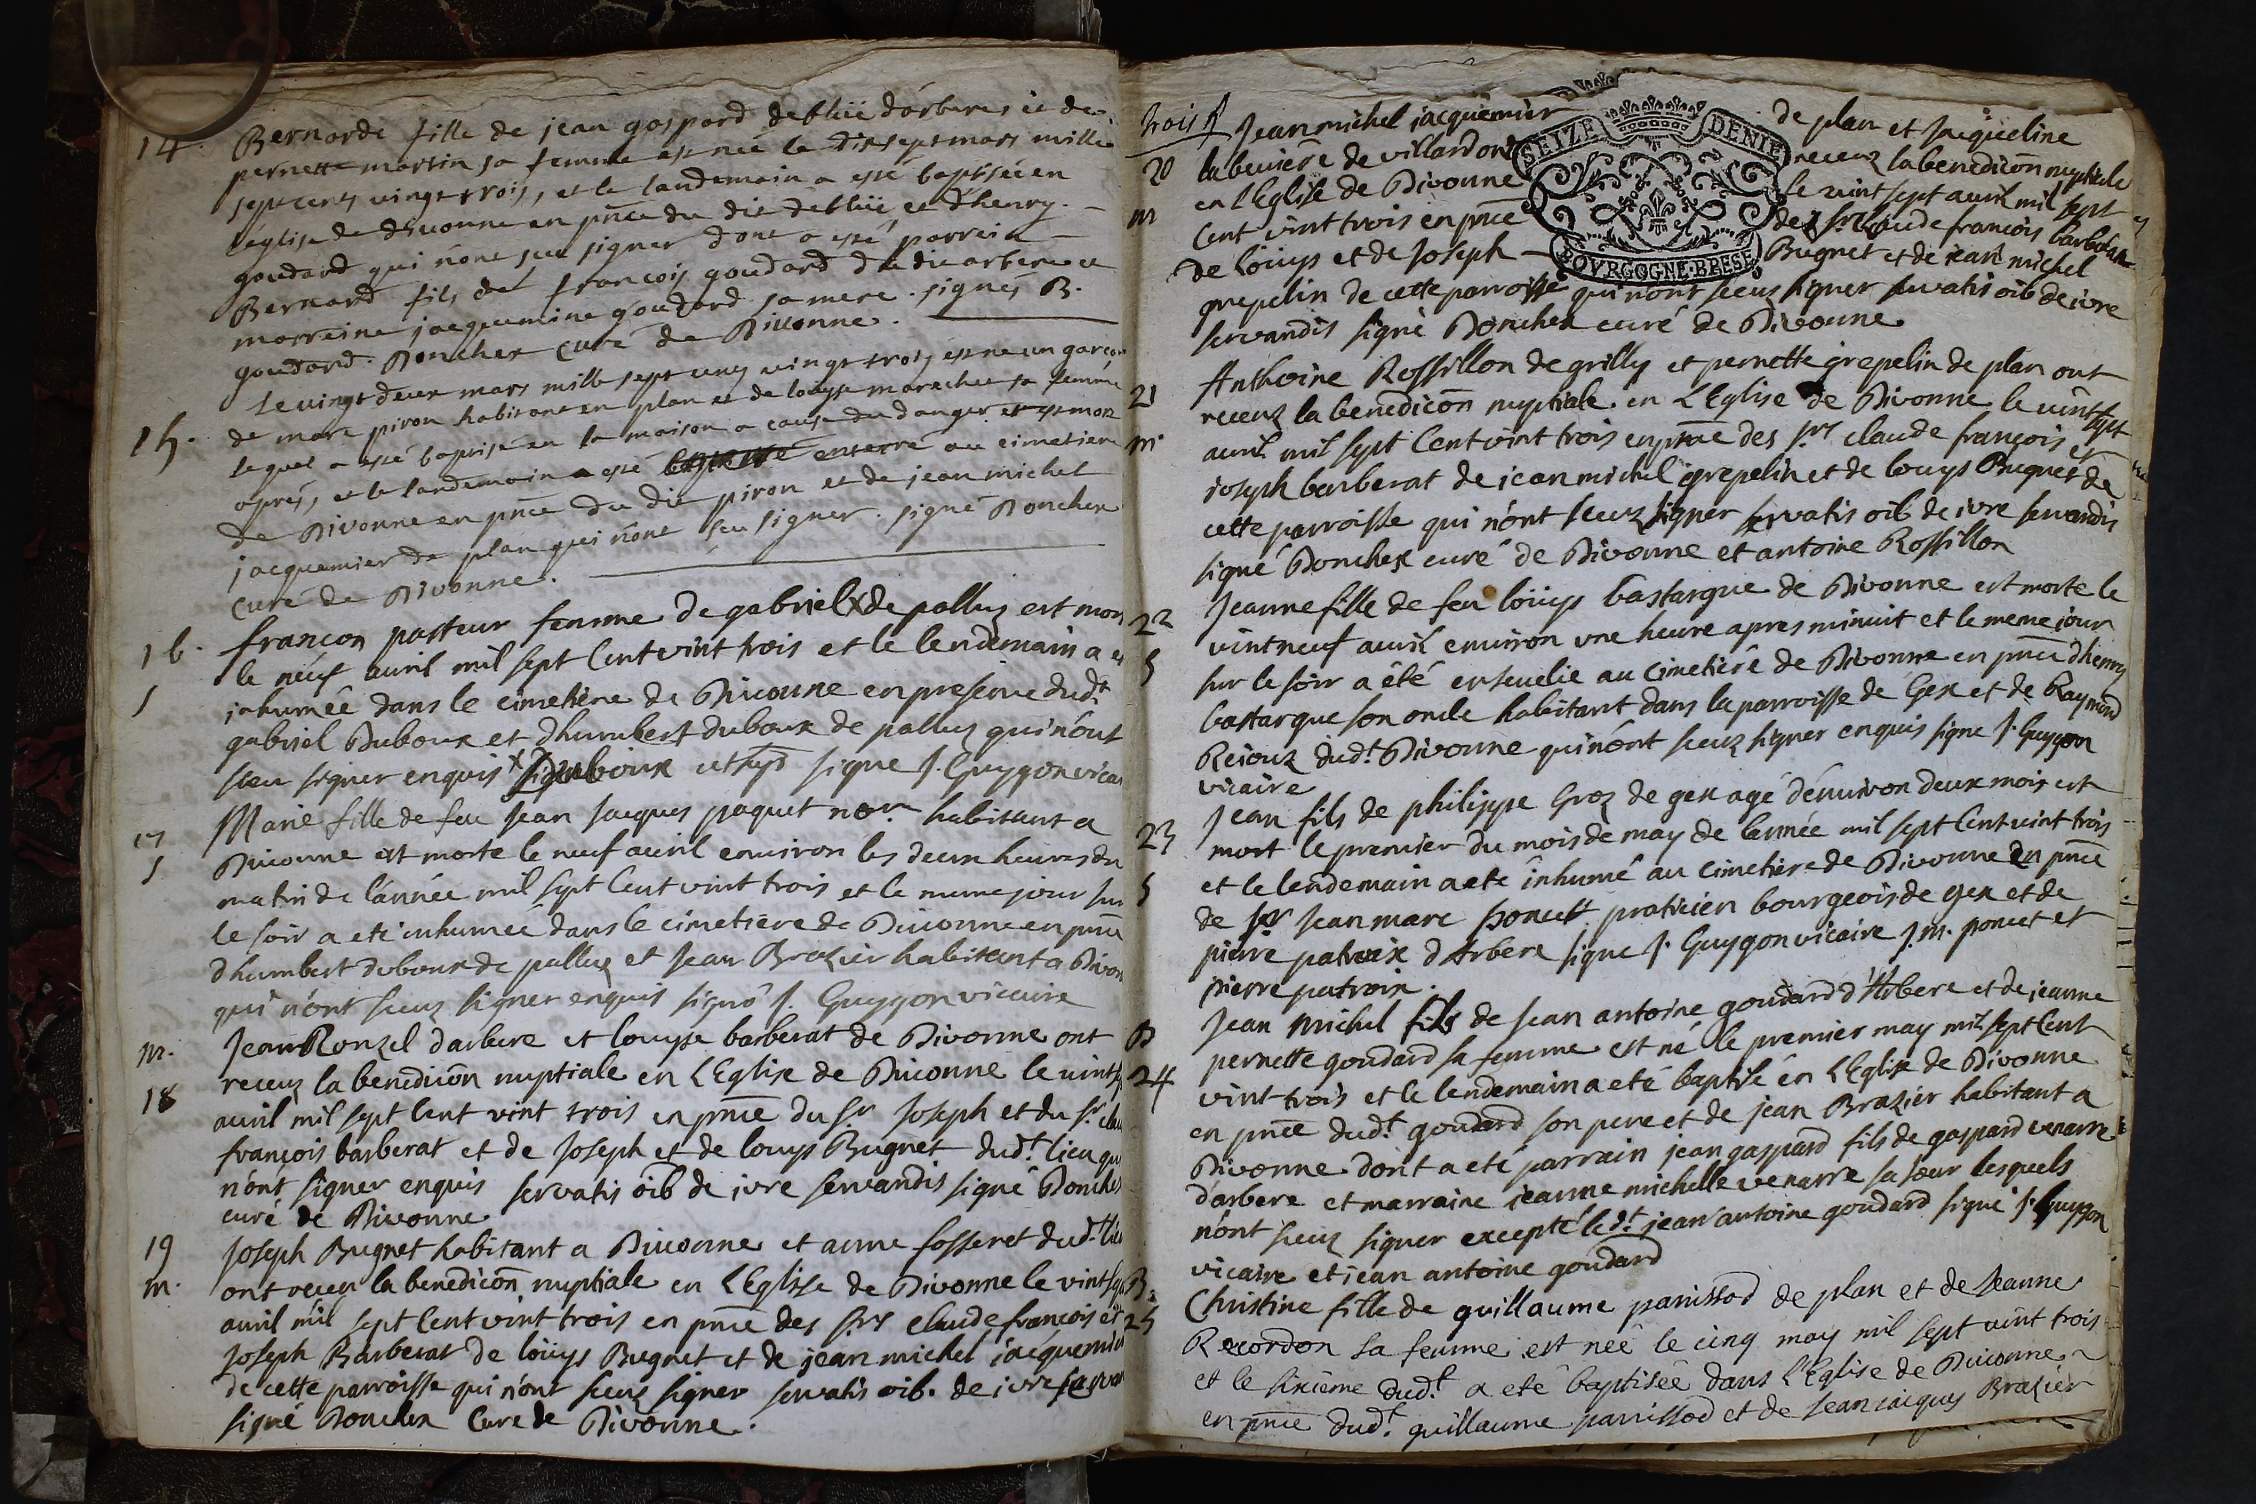 14. Bernarde fille de jean gaspard debluë d'arberes et de
pernette martin sa femme est née le dixsept mars mille
sept cents vingt trois, et le landemain a esté baptisée en
l'église de divonne en pnce du dit debluë et d'henry
goudard qui n'ont sceu signer dont a esté parrein
Bernard fils de francois goudard du dit arbere et
marreine jacquemine goudard sa mere. signés B.
goudard. Donchex curé de Divonne.
15. Le vingt deux mars mille sept cens vingt trois est né un garçon
de marc piron habitant en plan et de louyse marechet sa femme
lequel a esté baptisé en la maison a cause du danger et est mort
aprés, et le landemain a esté enterré au cimetiere
de Divonne en pnce du dit piron et de jean michel
jacquemier de plan qui n'ont sceu signer. signé Donchex
curé de Divonne.
16. françon pasteur femme de gabriel x de palluz est mor
le neuf avril mil sept Cent vint trois et le lendemain a e
S inhumée dans le cimetière de Divonne en presence dudt
gabriel Duboux et d'humbert duboux de palluz qui n'ont
sceu signer enquis x Duboux signé J. Guygon vicai
17 Marie fille de feu Jean Jacques paquet nore habitant a
S Divonne est morte le neuf avril environ les deux heures du
matin de l'année mil sept Cent vint trois et le meme jour sur
le soir a eté inhumée dans le cimetière de Divonne en pnce
d'humbert duboux de palluz et Jean Brazier habitant a Divon
qui n'ont sceuz signer enquis signé J. Guygon vicaire
m. Jean Ronzel d'arbere et louyse barberat de Divonne ont
18 receuz la benediction nuptiale en L'Eglise de Divonne le vint
avril mil sept Cent vint trois en pnce du Sr Joseph et du Sr clau
françois barberat et de Joseph et de louys Bugnet dudt lieu qui
n'ont signer enquis servatis oib de jure servandis signé Donchex
curé de Divonne
19 Joseph Bugnet habitant a Divonne et anne fosseret dudt lieu
m. ont receu la benedicon nuptiale en L'Eglise de Divonne le vint
avril mil sept Cent vint trois en pnce des srs claude françois et
Joseph Barberat de louys Bugnet et de jean michel jacquemi
de cette parroisse qui n'ont sceuz signer servatis oib. de jure servan
signé Donchex Curé de Divonne.
trois
SEIZE DENIE
BOVRGOGNE·BRESE
Jean michel jacquemier de plan et Jaqueline
20 la beviere de villardon receuz la benedicon nuptiale
en L'Eglise de Divonne le vint sept avril mil sept
m Cent vint trois en pnce de sr claude françois barberat
de louys et de Joseph Bugnet et de jean michel
grepelin de cette parroisse qui n'ont sceuz signer servatis oib de jure
servandis signé Donchex curé de Divonne
Anthoine Rossillon de grilly et pernette grepelin de plan ont
21 receuz la benedicon nuptiale en L'Eglise de Divonne le vint sept
m. avril mil sept Cent vint trois en pnce des srs claude françois et
joseph barberat de jean michel grepelin et de louys Bugnet de
cette parroisse qui n'ont sceuz signer servatis oib de jure servandis
signé Donchex curé de Divonne et antoine Rossillon
22 Jeanne fille de feu louys bastarque de Divonne est morte le
vint neuf avril environ une heure apres minuit et le meme jour
S sur le soir a été ensevelie au cimetière de Divonne en pnce d'henry
bastarque son oncle habitant dans la parroisse de Gex et de Raymond
Rejouz dudt Divonne qui n'ont sceuz signer enquis signé J. Guygon
vicaire
Jean fils de philippe Groz de gex agé d'environ deux mois est
23 mort le premier du mois de may de l'année mil sept Cent vint trois
et le lendemain a eté inhumé au cimetière de Divonne en pnce
S de sr Jean marc poncet praticien bourgeois de gex et de
pierre patroix d'Arbere signé J. Guygon vicaire J. m. poncet et
pierre patroix.
Jean Michel fils de Jean antoine goudard d'Arbere et de jeanne
B pernette goudard sa femme est né le premier may mil sept Cent
24 vint trois et le lendemain a eté baptisé en L'Eglise de Divonne
en pnce dudt goudard son pere et de jean Brazier habitant a
Divonne dont a eté parrain jean gaspard fils de gaspard venarre
d'arbere et marraine jeanne michelle venarre sa sœur lesquels
n'ont sceuz signer excepté ledt jean antoine goudard signé J. Guygon
vicaire et jean antoine goudard
B. Christine fille de guillaume panissod de plan et de Jeanne
25 Recordon sa femme est née le cinq may mil sept vint trois
et le sixième dudt a eté baptisée dans l'Eglise de Divonne
en pnce dudt guillaume panissod et de Jean jacques Brazier